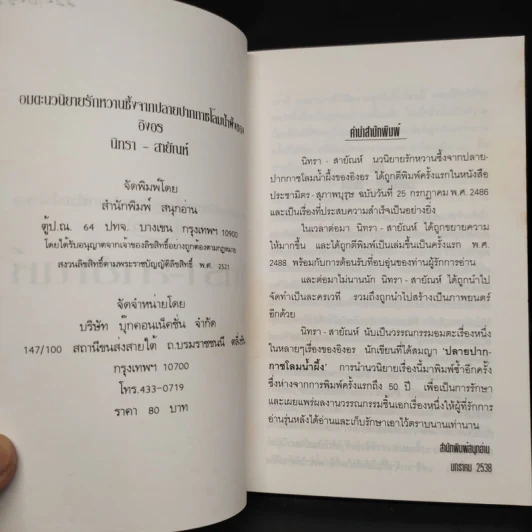 อมตะนวนิยายรักหวานซึ้งจากปลายปากกาชโลมน้ำผึ้งของ
อิงอร
นิทรา - สายัณห์
จัดพิมพ์โดย
สำนักพิมพ์ สนุกอ่าน
ตู้ ป.ณ. 64 ปทจ. บางเขน กรุงเทพฯ 10900
โดยได้รับอนุญาตจากเจ้าของลิขสิทธิ์อย่างถูกต้องตามกฎหมาย
สงวนลิขสิทธิ์ตามพระราชบัญญัติลิขสิทธิ์ พ.ศ. 2521
จัดจำหน่ายโดย
บริษัท บุ๊คคอนเน็คชั่น จำกัด
147/100 สถานีขนส่งสายใต้ ถ.บรมราชชนนี ตลิ่งชัน
กรุงเทพฯ 10700
โทร.433-0719
ราคา 80 บาท
คำนำสำนักพิมพ์
นิทรา - สายัณห์ นวนิยายรักหวานซึ้งจากปลาย-
ปากกาชโลมน้ำผึ้งของอิงอร ได้ถูกตีพิมพ์ครั้งแรกในหนังสือ
ประชามิตร-สุภาพบุรุษ ฉบับวันที่ 25 กรกฎาคม พ.ศ. 2486
และเป็นเรื่องที่ประสบความสำเร็จเป็นอย่างยิ่ง
ในเวลาต่อมา นิทรา - สายัณห์ ได้ถูกขยายความ
ให้มากขึ้น และได้ถูกตีพิมพ์เป็นเล่มขึ้นเป็นครั้งแรก พ.ศ.
2488 พร้อมกับการต้อนรับที่อบอุ่นของท่านผู้รักการอ่าน
และต่อมาไม่นานนัก นิทรา - สายัณห์ ได้ถูกนำไป
จัดทำเป็นละครเวที รวมถึงถูกนำไปสร้างเป็นภาพยนตร์
อีกด้วย
นิทรา - สายัณห์ นับเป็นวรรณกรรมอมตะเรื่องหนึ่ง
ในหลายๆเรื่องของอิงอร นักเขียนที่ได้สมญา "ปลายปาก-
กาชโลมน้ำผึ้ง" การนำนวนิยายเรื่องนี้มาพิมพ์ซ้ำอีกครั้ง
ซึ่งห่างจากการพิมพ์ครั้งแรกถึง 50 ปี เพื่อเป็นการรักษา
และเผยแพร่ผลงานวรรณกรรมชิ้นเอกเรื่องหนึ่งให้ผู้ที่รักการ
อ่านรุ่นหลังได้อ่านและเก็บรักษาเอาไว้ตราบนานเท่านาน
สำนักพิมพ์สนุกอ่าน
มกราคม 2538